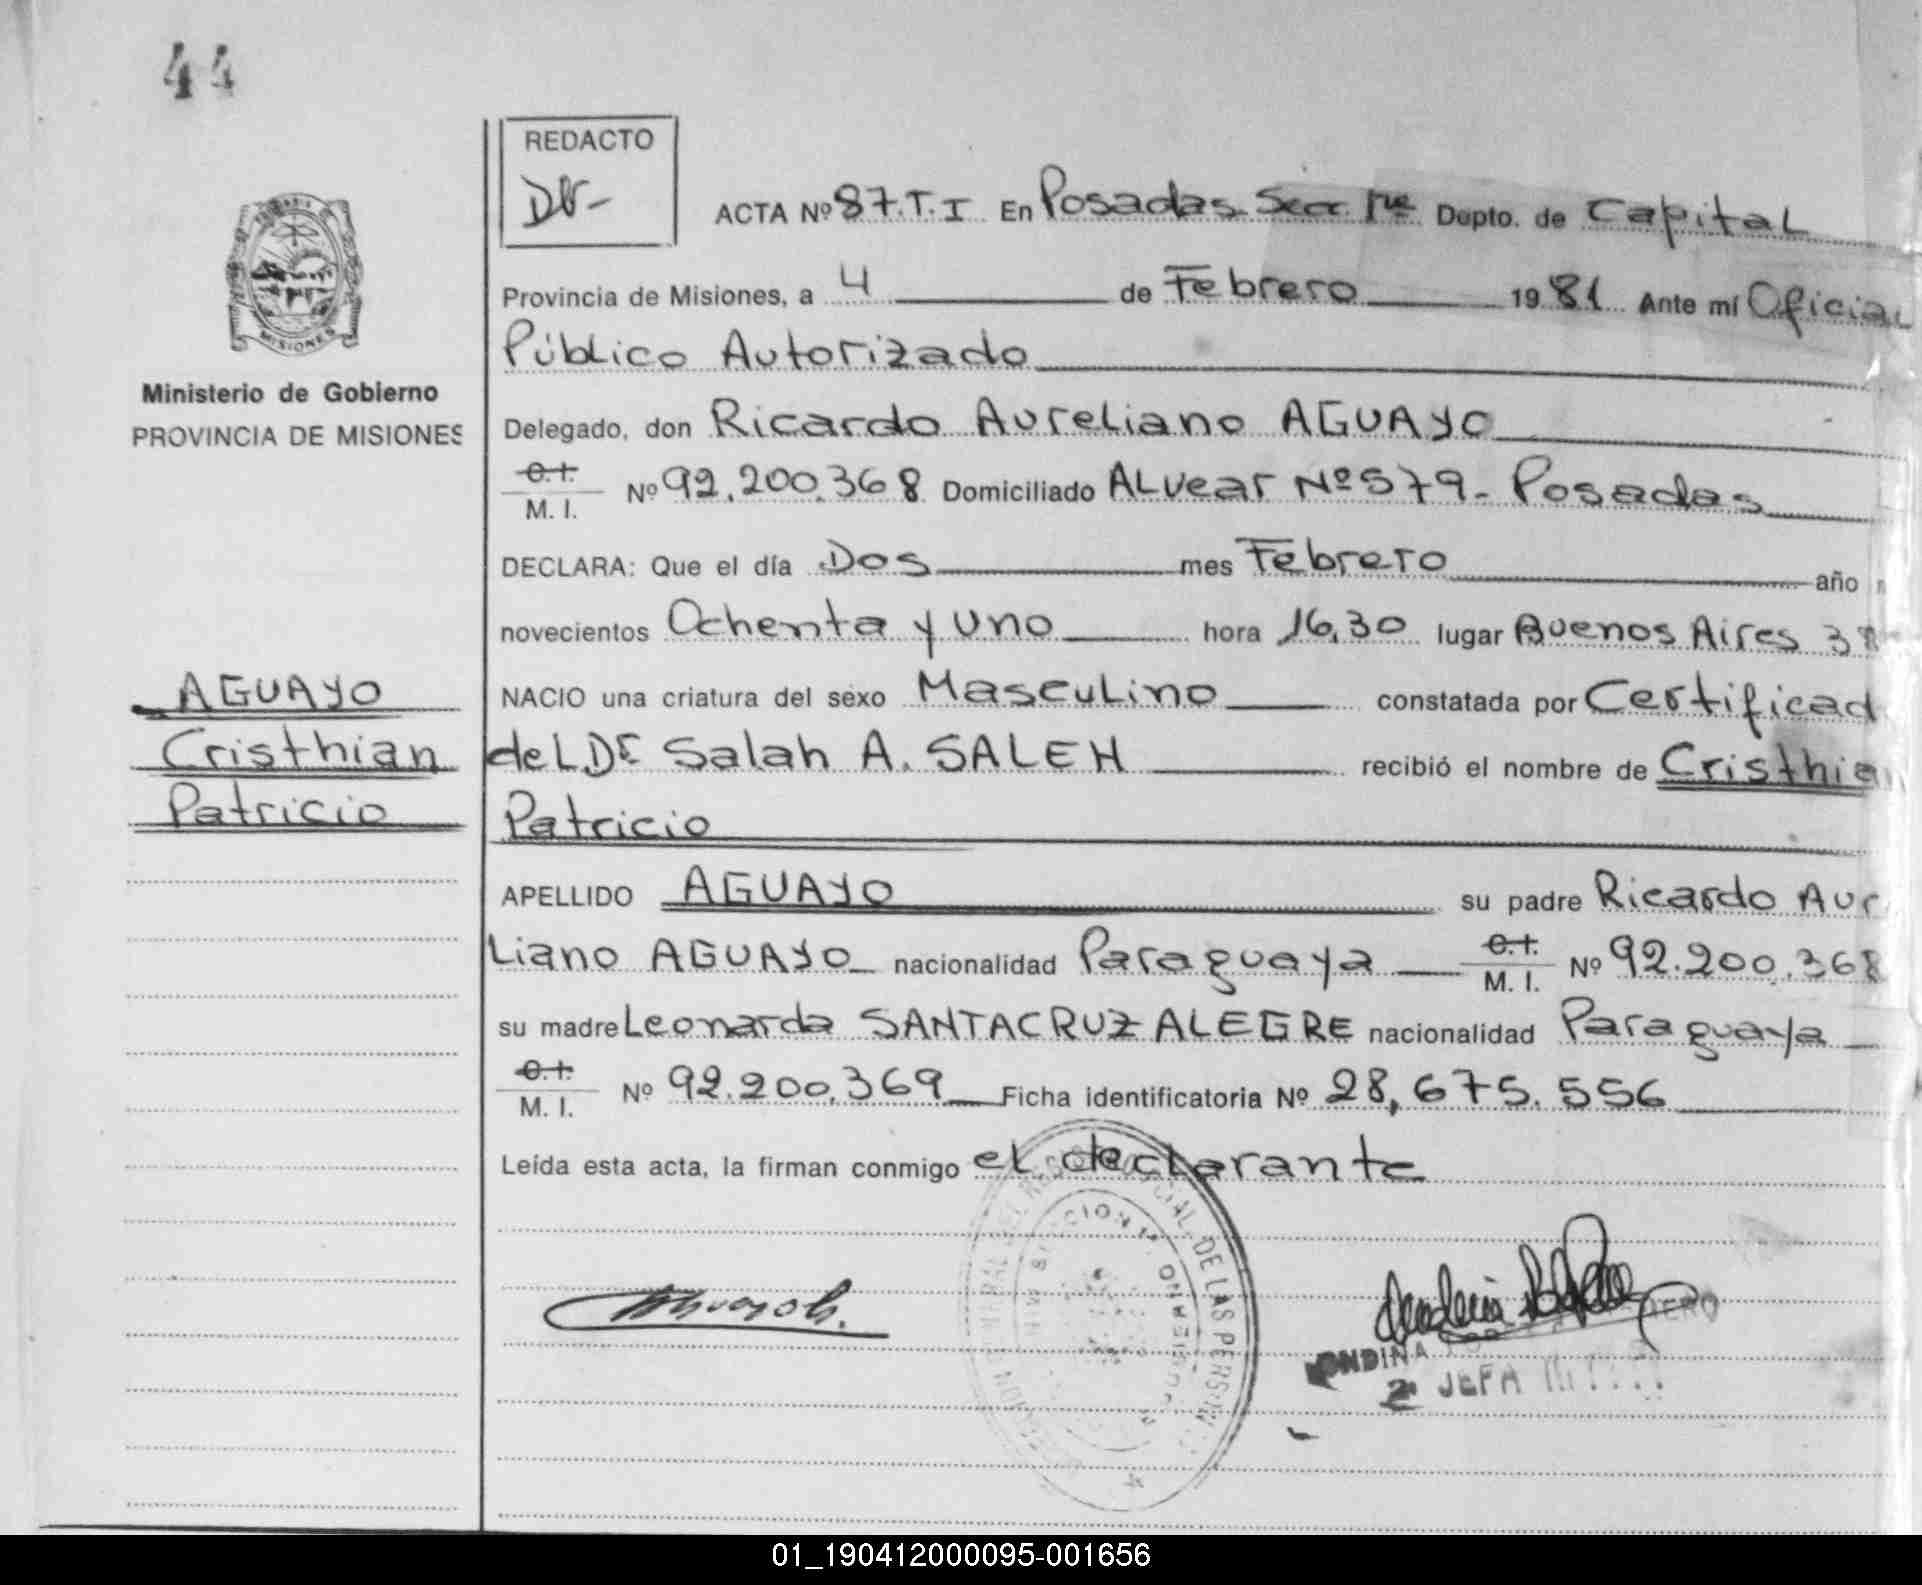 44
REDACTO
ACTA Nº 87.T.I En Posadas Secc 1ra Dupto. de Capital
Provincia de Misiones, a 4 de Febrero 1981 Ante mí Oficial
Público Autorizado
MISIONES
Ministerio de Gobierno
PROVINCIA DE MISIONES
Delegado, don Ricardo Aureliano AGUAYO
C.I.
M. I. Nº 92.200.368 Domiciliado ALvear Nº 579- Posadas
DECLARA: Que el día Dos mes Febrero año
novecientos Ochenta y uno hora 16,30 lugar Buenos Aires
NACIO una criatura del sexo Masculino constatada por Certificad
del Dr Salah A. SALEH recibió el nombre de Cristhian
Patricio
AGUAYO
Cristhian
Patricio
APELLIDO AGUAYO su padre Ricardo Aur
Liano AGUAYO nacionalidad Paraguaya C.I.
M. I. Nº 92.200.368
su madre Leonarda SANTACRUZ ALEGRE nacionalidad Paraguaya
C.I.
M. I. Nº 92.200.369 Ficha identificatoria Nº 28,675.556
Leída esta acta, la firman conmigo el declarante
DE LAS PERSONAS
ONDINA
2ª JEFA
01_190412000095-001656